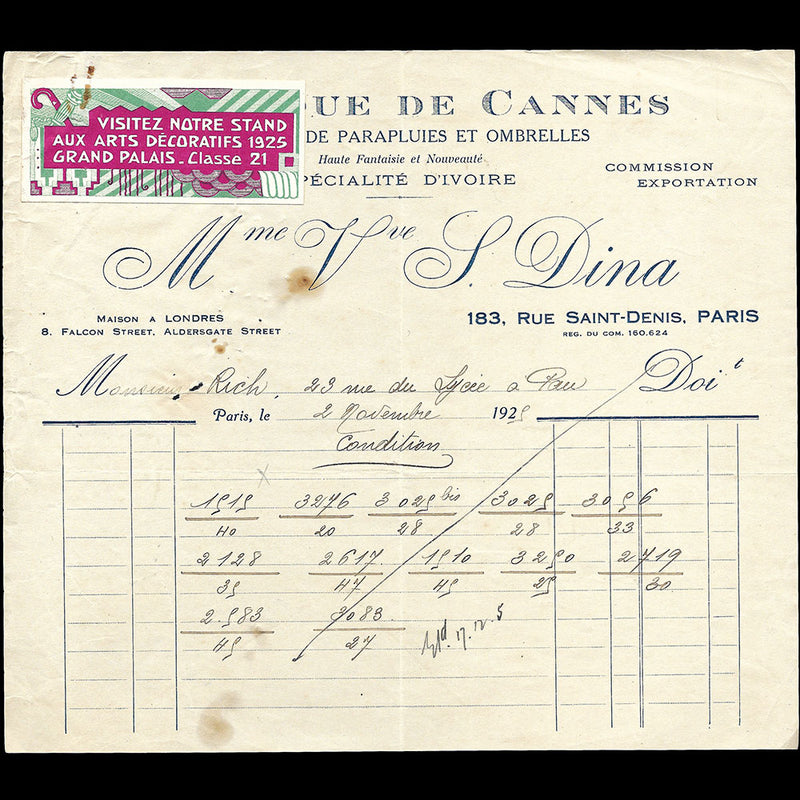 VISITEZ NOTRE STAND
AUX ARTS DÉCORATIFS 1925
GRAND PALAIS _ Classe 21
QUE DE CANNES
DE PARAPLUIES ET OMBRELLES
Haute Fantaisie et Nouveauté
PÉCIALITÉ D'IVOIRE
COMMISSION
EXPORTATION
Mme Vve S. Dina
MAISON A LONDRES
8. FALCON STREET, ALDERSGATE STREET
183, RUE SAINT-DENIS, PARIS
REG. DU COM. 160.624
Monsieur Rich, 23 rue du Lycée a Pau Doit
Paris, le 2 Novembre 1925
Condition
1515 3276 3025 bis 3025 3056
40 20 28 28 33
2128 2617 1510 3250 2719
35 47 45 25 30
2583 3083
45 27
17.12.5